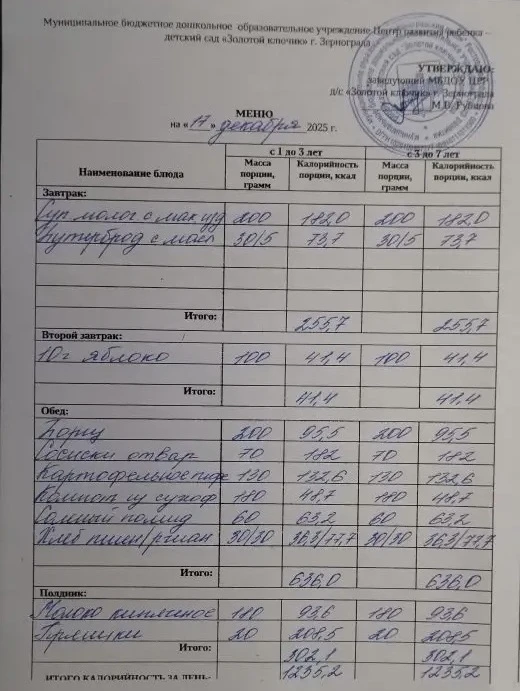 Муниципальное бюджетное дошкольное образовательное учреждение Центр развития ребенка –
детский сад «Золотой ключик» г. Зернограда
УТВЕРЖДАЮ:
заведующий МБДОУ ЦРР
д/с «Золотой ключик» г. Зернограда
М.В.
МЕНЮ
на «17» декабря 2025 г.
Наименование блюда с 1 до 3 лет с 3 до 7 лет
Масса порции, грамм Калорийность порции, ккал Масса порции, грамм Калорийность порции, ккал
Завтрак:
Суп молоч с мак изд 200 182,0 200 182,0
Бутерброд с масл 30/5 73,7 30/5 73,7
Итого: 255,7 255,7
Второй завтрак:
10ч яблоко 100 41,4 100 41,4
Итого: 41,4 41,4
Обед:
Борщ 200 95,5 200 95,5
Сосиски отвар 70 182 70 182
Картофельное пюре 130 132,6 130 132,6
Компот из сухоф 180 48,7 180 48,7
Соленый помид 60 63,2 60 63,2
Хлеб пшен/ржан 30/30 36,3/77,7 30/30 36,3/77,7
Итого: 636,0 636,0
Полдник:
Молоко кипяченое 180 93,6 180 93,6
Пряники 20 208,5 20 208,5
Итого: 302,1 302,1
ИТОГО КАЛОРИЙНОСТЬ ЗА ДЕНЬ: 1235,2 1235,2